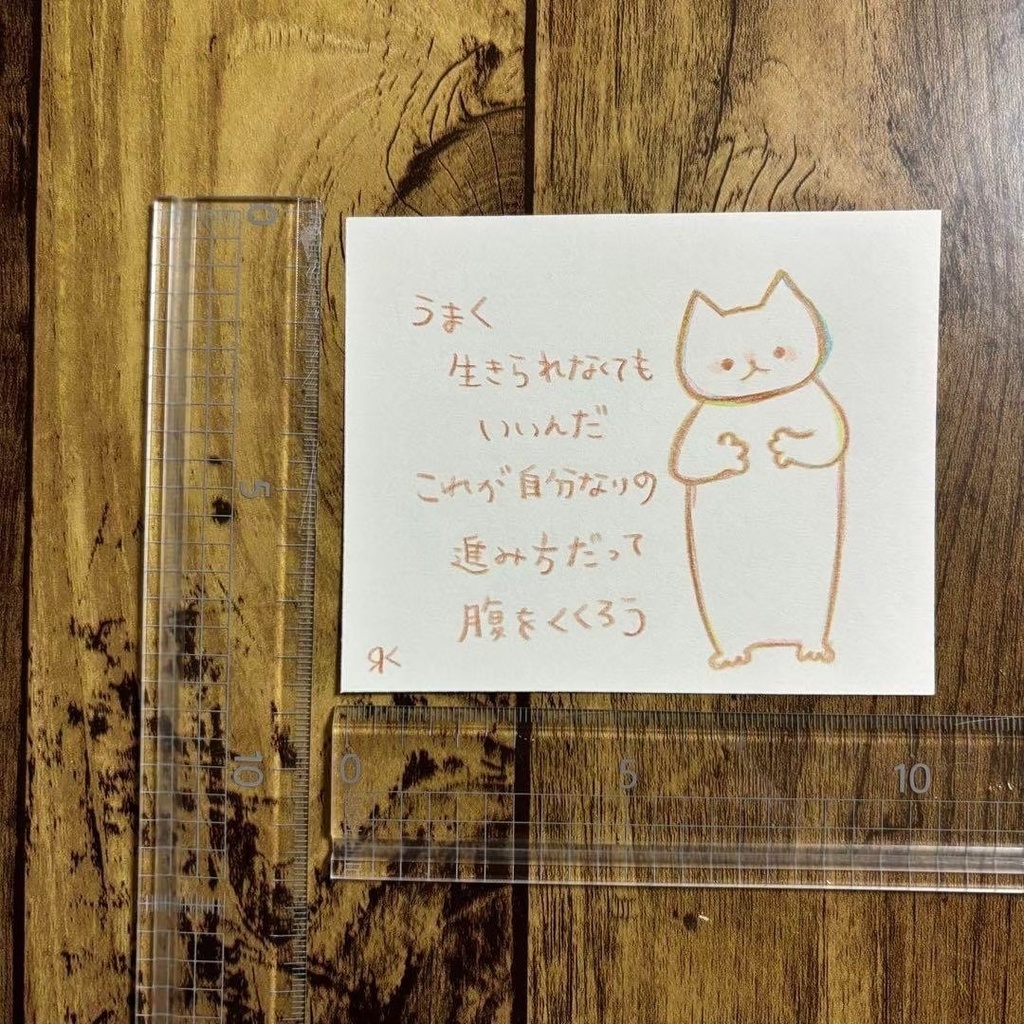 うまく
生きられなくても
いいんだ
これが自分なりの
進み方だって
腹をくくろう
0
5
10
0
5
10